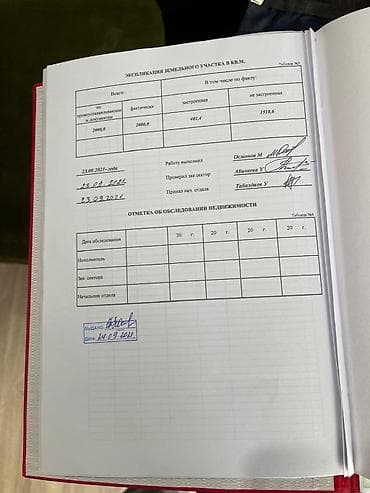 ЭКСПЛИКАЦИЯ ЗЕМЕЛЬНОГО УЧАСТКА В КВ.М.
Таблица №5
Всего:
В том числе по факту:
по правоустанавливающим документам
фактически
застроенная
не застроенная
2000,0
2000,0
481,4
1518,6
15.09.2021- года
Работу выполнил
Осмонов М
Проверил зав сектор
23.09.2021
Принял нач. отдела
ОТМЕТКА ОБ ОБСЛЕДОВАНИИ НЕДВИЖИМОСТИ
Таблица №6
Дата обследования
20 г.
20 г.
20 г.
20 г.
Исполнитель
Зав сектора
Начальник отдела
ВЫДАНО
Дата: 24.09.2021